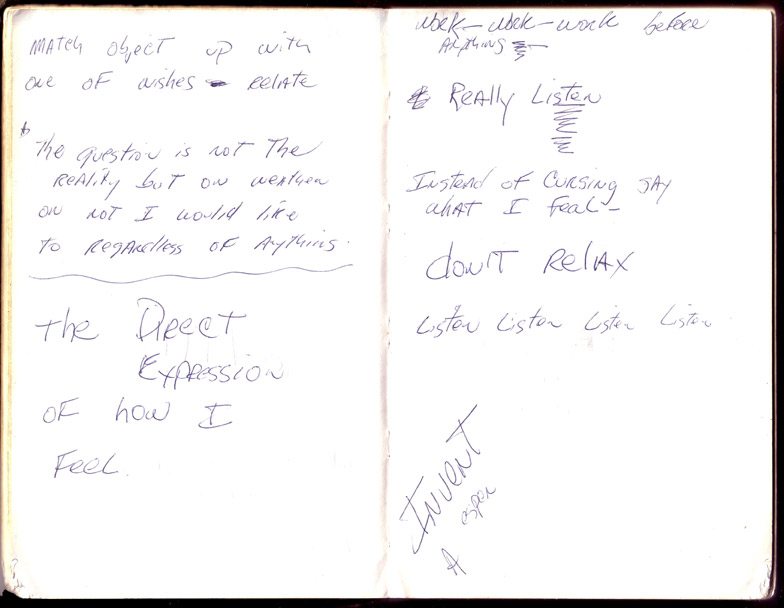 Match object up with
one of wishes relate
The question is not the
reality but on
or not I would like
to regardless of Aything.
the Direct
Expression
of how I
Feel.
Work - Work - work before
Anything
Really Listen
Instead of Cursing say
what I Feal -
don't Relax
Listen Listen Listen Listen
Invent
A